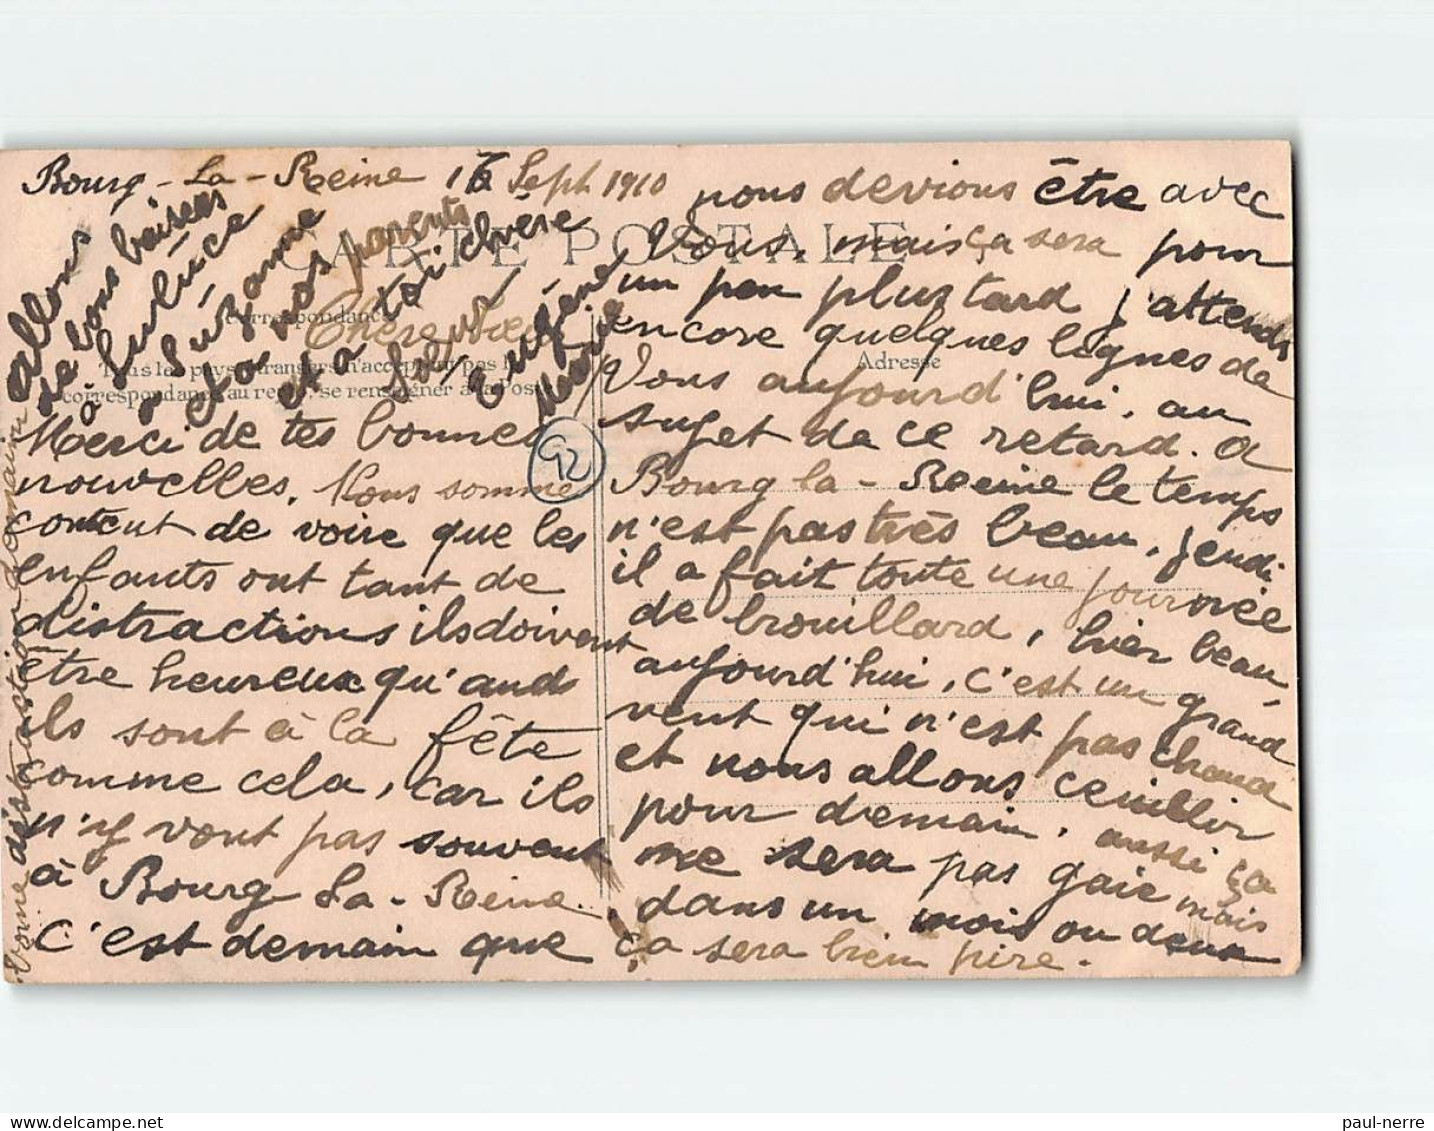 Bourg-La-Reine 16 Sept 1910
CARTE POSTALE
Correspondance
Adresse
Tous les pays étrangers n'acceptent pas la
correspondance au recto, se renseigner à la Poste
Merci de tes bonnes
nouvelles. Nous sommes
content de voire que les
enfants ont tant de
distractions ils doivent
être heureux qu'ands
ils sont à la fête
comme cela, car ils
n'y vont pas souvent
à Bourg La-Reine.
C'est demain que
nous devions être avec
Vous, mais ça sera pour
un peu plus tard j'attends
encore quelques lignes de
Vous aujourd'hui, au
sujet de ce retard. a
Bourg la-Reine le temps
n'est pas très beau, jeudi
il a fait toute une journée
de brouillard, hier beau,
aujourd'hui, c'est un grand
vent qui n'est pas chaud
et nous allons ceuillir
pour demain. aussi ça
me sera pas gaie mais
dans un mois ou deux
ça sera bien pire.
bonne distraction demain
allons
de bons baisers
à Lulúce
a Suzanne
et a nos parents
et a toi chère
92
paul-nerre